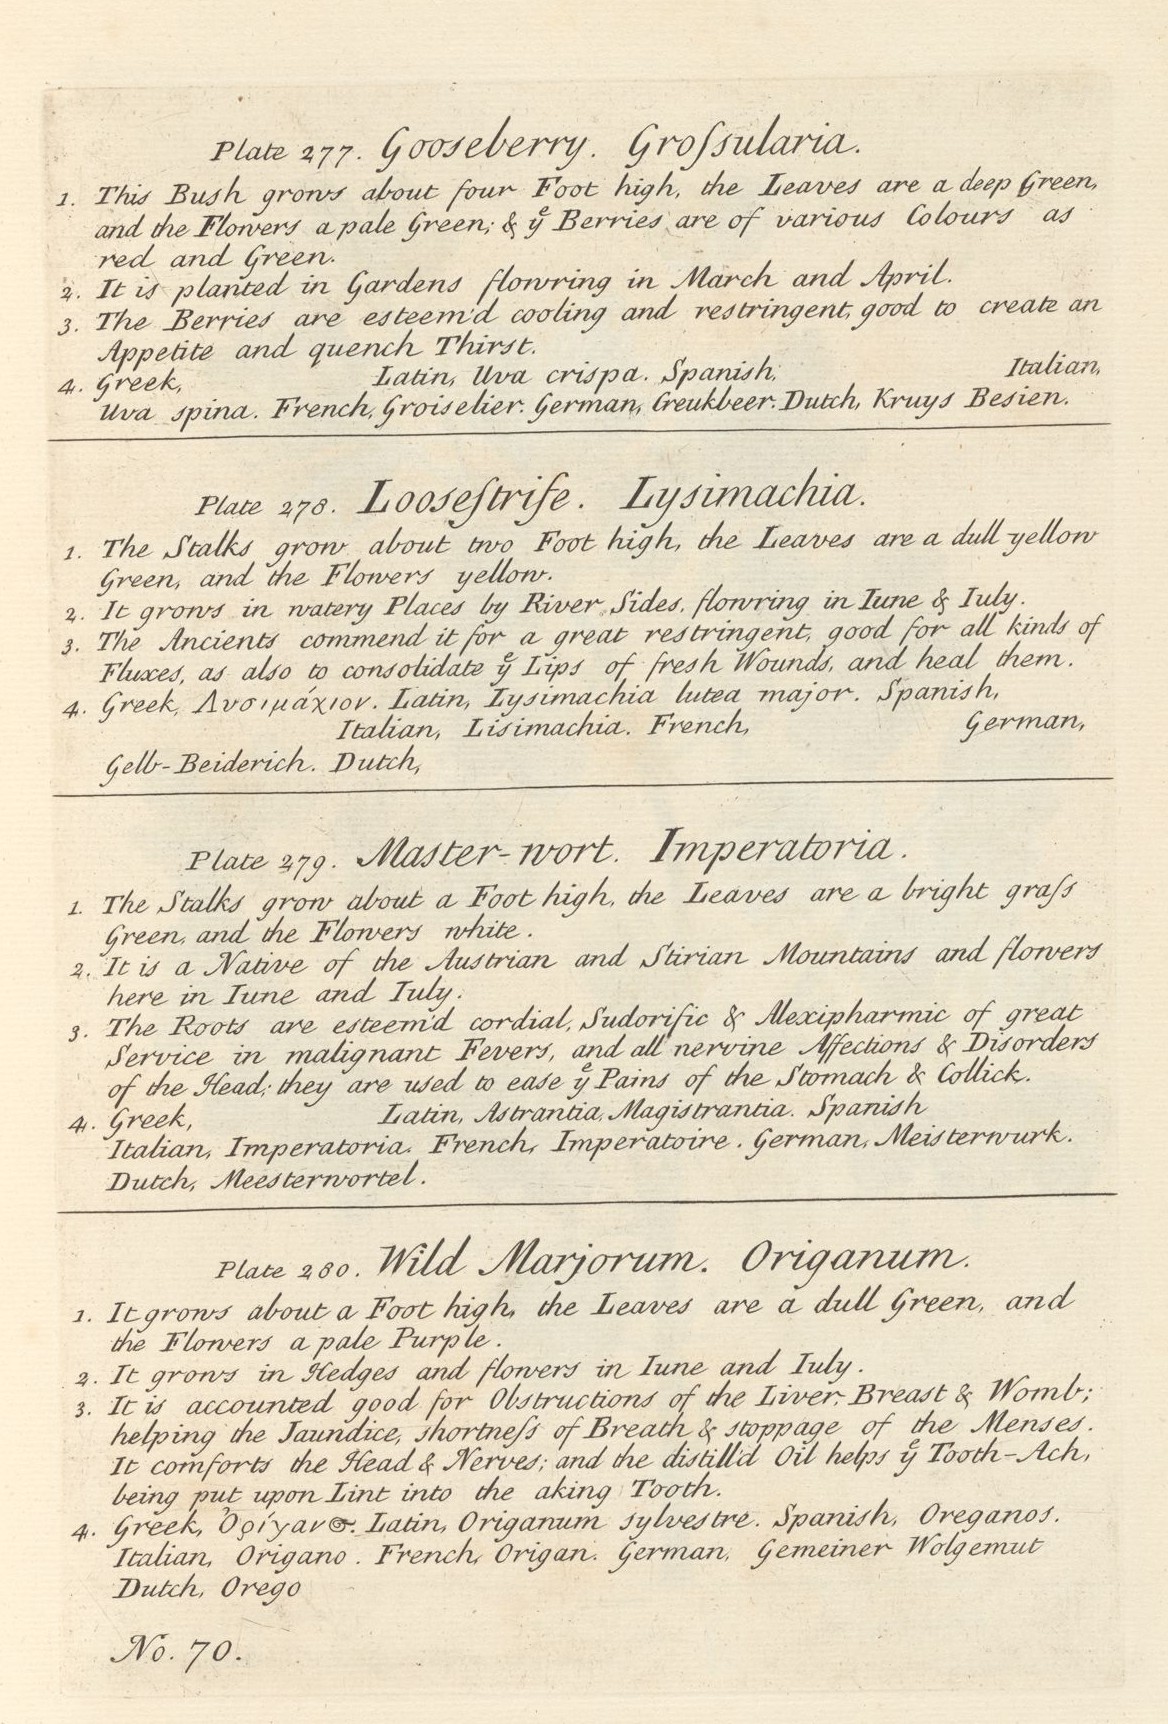 Plate 277. Gooseberry. Groſsularia.
1. This Bush grows about four Foot high, the Leaves are a deep Green,
and the Flowers a pale Green; & yͤ Berries are of various Colours as
red and Green.
2. It is planted in Gardens flowring in March and April.
3. The Berries are esteem'd cooling and restringent, good to create an
Appetite and quench Thirst.
4. Greek, Latin, Uva crispa. Spanish, Italian,
Uva spina. French, Groiselier. German, Creukbeer. Dutch, Kruys Besien.
Plate 278. Looseſtrife. Lysimachia.
1. The Stalks grow about two Foot high, the Leaves are a dull yellow
Green, and the Flowers yellow.
2. It grows in watery Places by River Sides, flowring in Iune & Iuly.
3. The Ancients commend it for a great restringent, good for all kinds of
Fluxes, as also to consolidate yͤ Lips of fresh Wounds, and heal them.
4. Greek, Λυσιμάχιον. Latin, Lysimachia lutea major. Spanish,
Italian, Lisimachia. French, German,
Gelb-Beiderich. Dutch,
Plate 279. Master-wort. Imperatoria.
1. The Stalks grow about a Foot high, the Leaves are a bright graſs
Green, and the Flowers white.
2. It is a Native of the Austrian and Stirian Mountains and flowers
here in Iune and Iuly.
3. The Roots are esteem'd cordial, Sudorific & Alexipharmic of great
Service in malignant Fevers, and all nervine Affections & Disorders
of the Head; they are used to ease yͤ Pains of the Stomach & Collick.
4. Greek, Latin, Astrantia, Magistrantia. Spanish
Italian, Imperatoria. French, Imperatoire. German, Meisterwurk.
Dutch, Meesterwortel.
Plate 280. Wild Marjorum. Origanum.
1. It grows about a Foot high, the Leaves are a dull Green, and
the Flowers a pale Purple.
2. It grows in Hedges and flowers in Iune and Iuly.
3. It is accounted good for Obstructions of the Liver, Breast & Womb;
helping the Jaundice, shortneſs of Breath & stoppage of the Menses.
It comforts the Head & Nerves; and the distill'd Oil helps yͤ Tooth-Ach,
being put upon Lint into the aking Tooth.
4. Greek, Ὀρίγανος. Latin, Origanum sylvestre. Spanish, Oreganos.
Italian, Origano. French, Origan. German, Gemeiner Wolgemut
Dutch, Orego
No. 70.